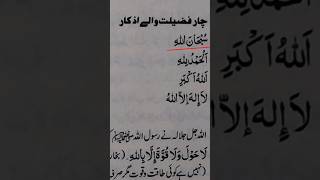 چار فضیلت والے اذکار
سُبْحَانَ اللهِ
اَلْحَمْدُ لِلهِ
اَللهُ اَكْبَرِ
لَا إِلهَ إِلَّا اللهُ
اللہ جل جلالہ نے رسول اللہ ﷺ
لَا حَوْلَ وَلَا قُوَّةَ إِلَّا بِاللهِ (بخار
(نہیں ہے کوئی طاقت و قوت مگر صرف